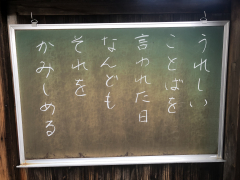 うれしい
ことばを
言われた日
なんども
それを
かみしめる